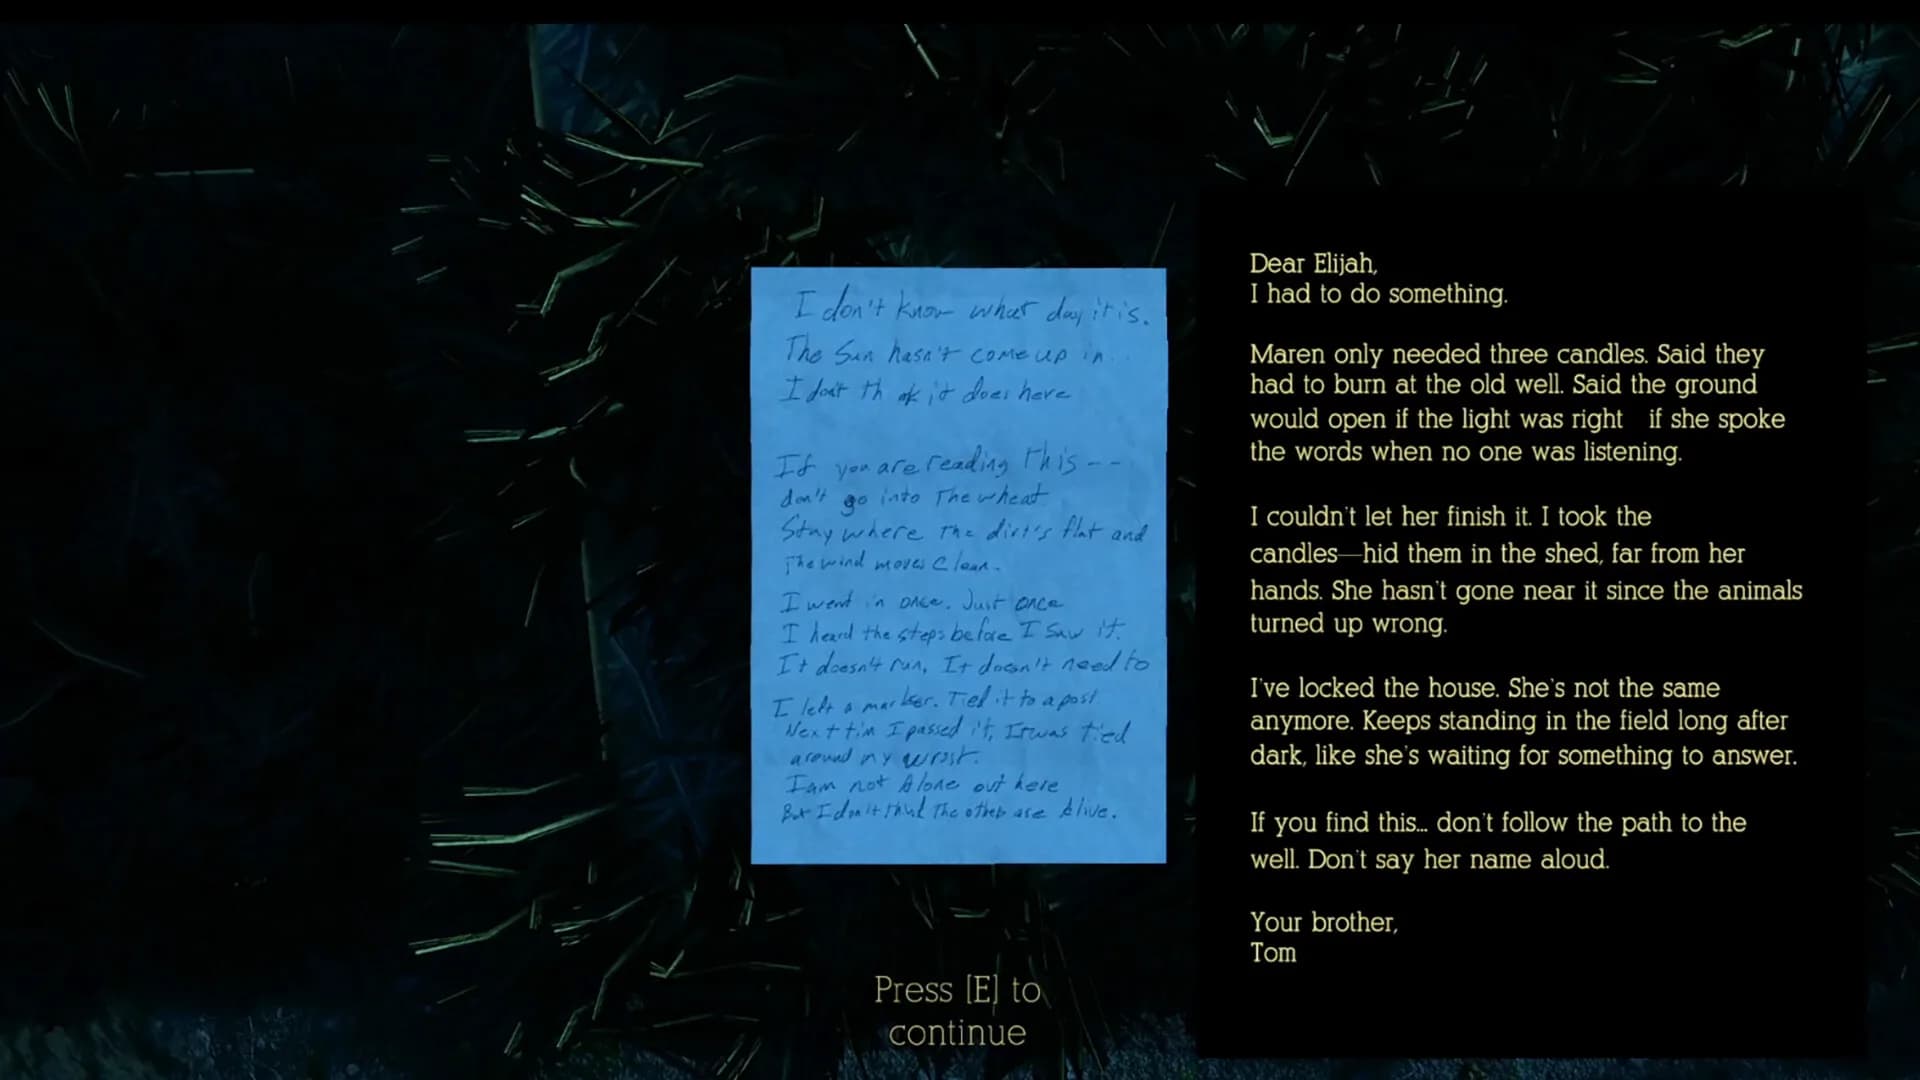 I don't know what day it is.
The Sun hasn't come up in..
I don't th nk it does here
If you are reading This --
don't go into The wheat
Stay where The dirt's flat and
The wind moves Clean.
I went in once. Just once
I heard the steps before I saw it.
It doesn't run, It doesn't need to
I left a marker. Tied it to a post
Next tim I passed it, It was tied
around my wrist.
I am not Alone out here
But I don't think The others are Alive.
Press [E] to
continue
Dear Elijah,
I had to do something.
Maren only needed three candles. Said they
had to burn at the old well. Said the ground
would open if the light was right   if she spoke
the words when no one was listening.
I couldn't let her finish it. I took the
candles—hid them in the shed, far from her
hands. She hasn't gone near it since the animals
turned up wrong.
I've locked the house. She's not the same
anymore. Keeps standing in the field long after
dark, like she's waiting for something to answer.
If you find this... don't follow the path to the
well. Don't say her name aloud.
Your brother,
Tom